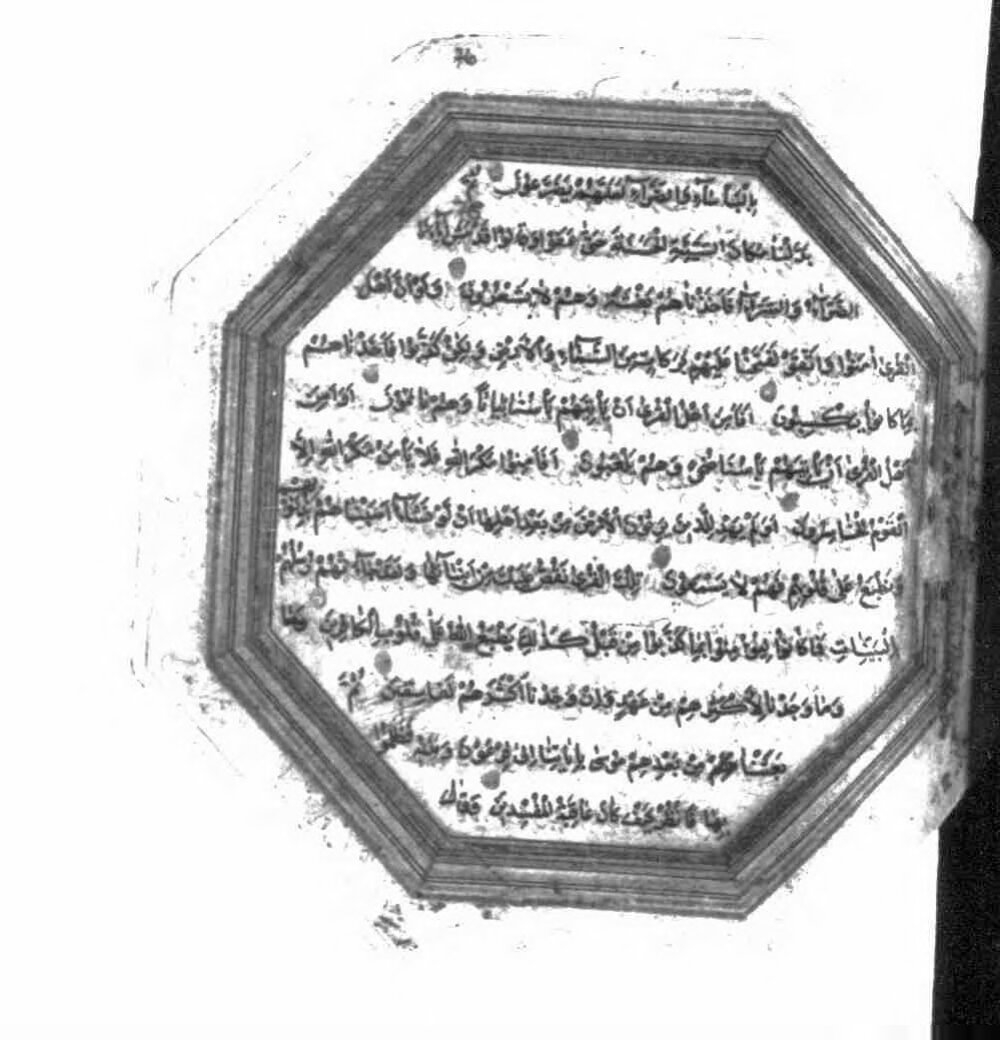 بِالْبَأْسَاءِ وَالضَّرَّاءِ لَعَلَّهُمْ يَضَّرَّعُونَ ثُمَّ
بَدَّلْنَا مَكَانَ السَّيِّئَةِ الْحَسَنَةَ حَتَّى عَفَوْا وَقَالُوا قَدْ مَسَّ آبَاءَنَا
الضَّرَّاءُ وَالسَّرَّاءُ فَأَخَذْنَاهُمْ بَغْتَةً وَهُمْ لَا يَشْعُرُونَ وَلَوْ أَنَّ أَهْلَ
الْقُرَى آمَنُوا وَاتَّقَوْا لَفَتَحْنَا عَلَيْهِمْ بَرَكَاتٍ مِنَ السَّمَاءِ وَالْأَرْضِ وَلَكِنْ كَذَّبُوا فَأَخَذْنَاهُمْ
بِمَا كَانُوا يَكْسِبُونَ أَفَأَمِنَ أَهْلُ الْقُرَى أَنْ يَأْتِيَهُمْ بَأْسُنَا بَيَاتًا وَهُمْ نَائِمُونَ أَوَأَمِنَ
أَهْلُ الْقُرَى أَنْ يَأْتِيَهُمْ بَأْسُنَا ضُحًى وَهُمْ يَلْعَبُونَ أَفَأَمِنُوا مَكْرَ اللَّهِ فَلَا يَأْمَنُ مَكْرَ اللَّهِ إِلَّا
الْقَوْمُ الْخَاسِرُونَ أَوَلَمْ يَهْدِ لِلَّذِينَ يَرِثُونَ الْأَرْضَ مِنْ بَعْدِ أَهْلِهَا أَنْ لَوْ نَشَاءُ أَصَبْنَاهُمْ بِذُنُوبِهِمْ
وَنَطْبَعُ عَلَى قُلُوبِهِمْ فَهُمْ لَا يَسْمَعُونَ تِلْكَ الْقُرَى نَقُصُّ عَلَيْكَ مِنْ أَنْبَائِهَا وَلَقَدْ جَاءَتْهُمْ رُسُلُهُمْ
بِالْبَيِّنَاتِ فَمَا كَانُوا لِيُؤْمِنُوا بِمَا كَذَّبُوا مِنْ قَبْلُ كَذَلِكَ يَطْبَعُ اللَّهُ عَلَى قُلُوبِ الْكَافِرِينَ وَمَا
وَمَا وَجَدْنَا لِأَكْثَرِهِمْ مِنْ عَهْدٍ وَإِنْ وَجَدْنَا أَكْثَرَهُمْ لَفَاسِقِينَ ثُمَّ
بَعَثْنَا مِنْ بَعْدِهِمْ مُوسَى بِآيَاتِنَا إِلَى فِرْعَوْنَ وَمَلَئِهِ فَظَلَمُوا
بِهَا فَانْظُرْ كَيْفَ كَانَ عَاقِبَةُ الْمُفْسِدِينَ وَقَالَ